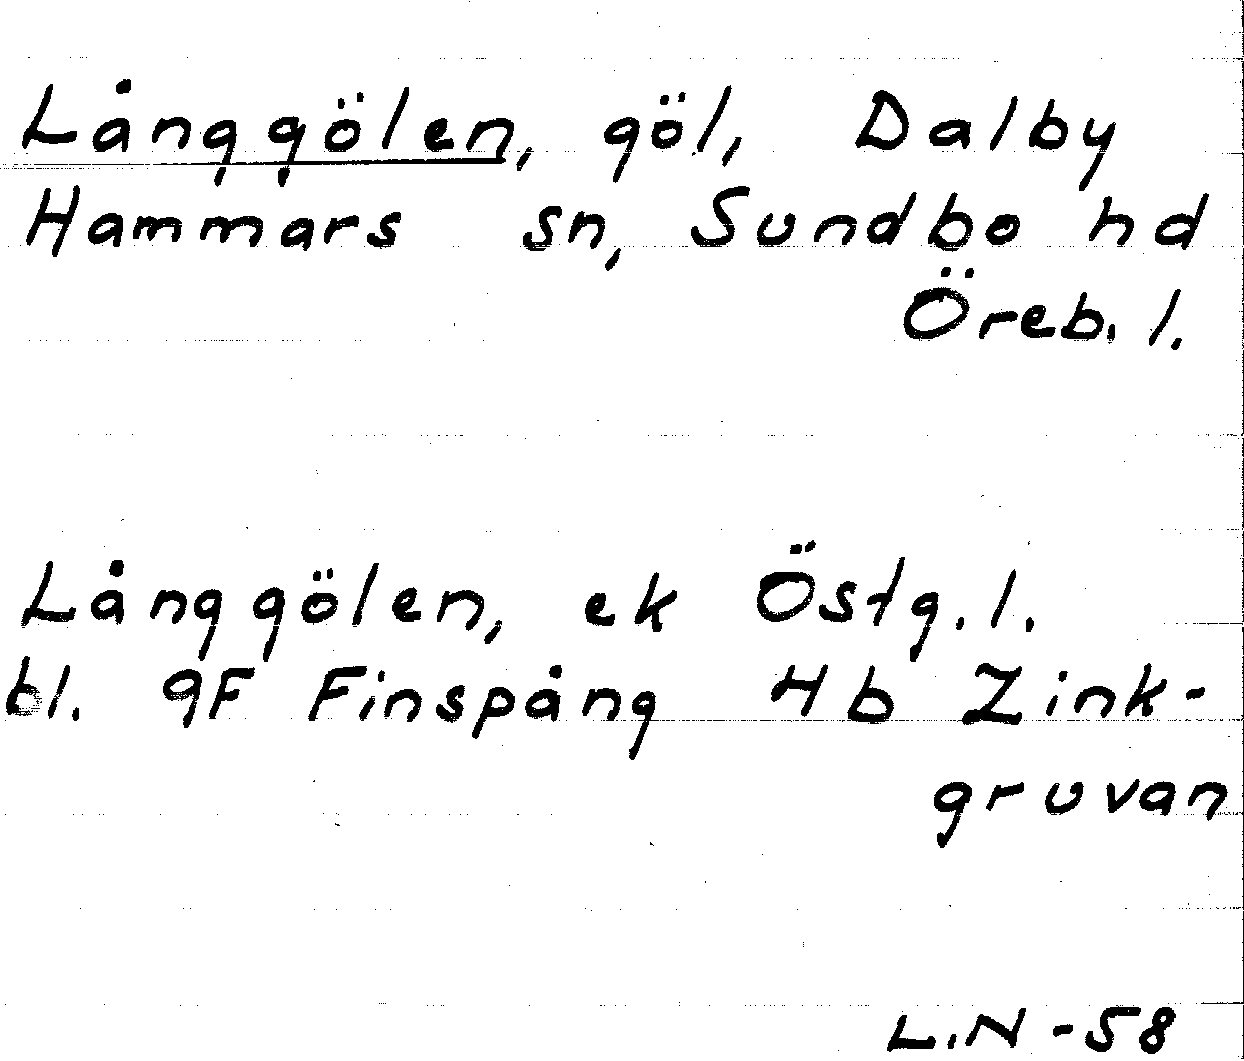 Långgölen, göl, Dalby
Hammars sn, Sundbo hd
Öreb. l.
Långgölen, ek Östg. l.
bl. 9F Finspång 4b Zink-
gruvan
L.N -58